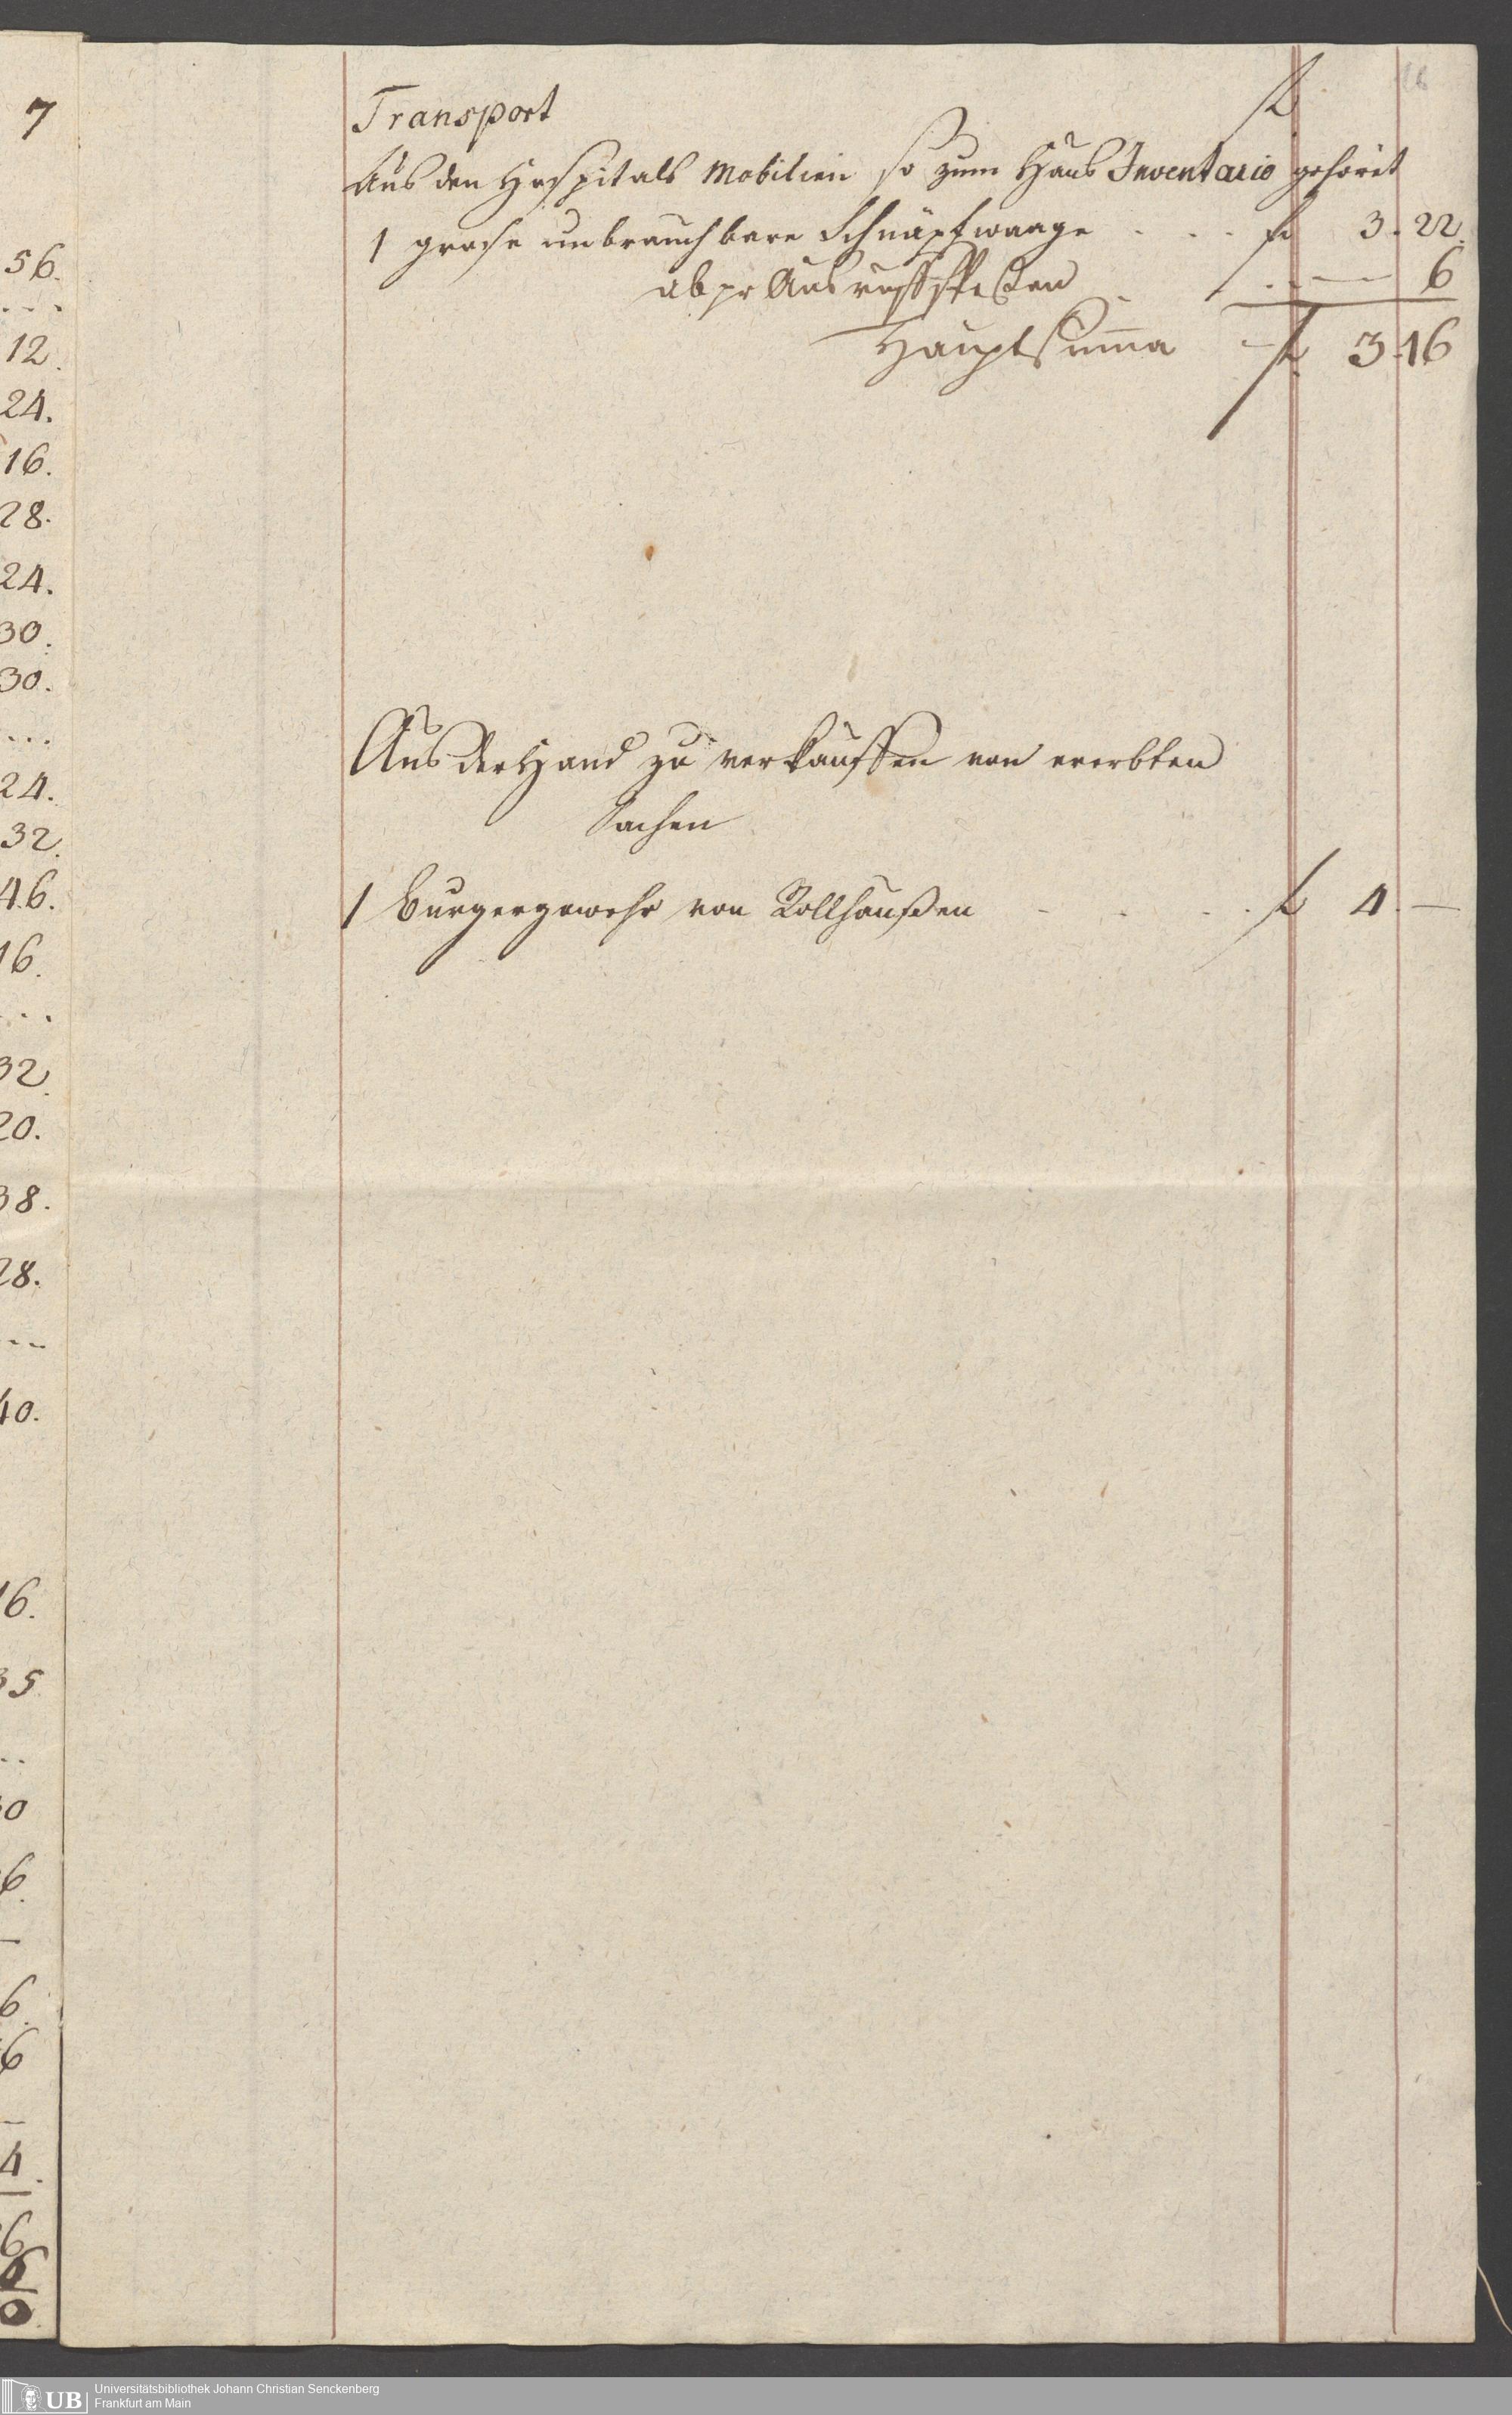 7
56.
12.
24.
16.
28.
24.
30.
30.
24.
32.
46.
16.
32.
20.
38.
28.
40.
16.
35
6.
6.
6
4.
6
0
16
Transport fl
Aus den Hospitals Mobilien so zum Haus Inventario gehöret
1 grose unbrauchbare Schnapfwaage . . . fl 3. 22.
ab pr Ausruffspesen . — 6
Hauptsumma — fl 3.16
Aus der Hand zu verkauffen von ererbten
Sachen
1 Burgergewehr von Rollhaußen - . . . fl 4. —
UB
Universitätsbibliothek Johann Christian Senckenberg
Frankfurt am Main